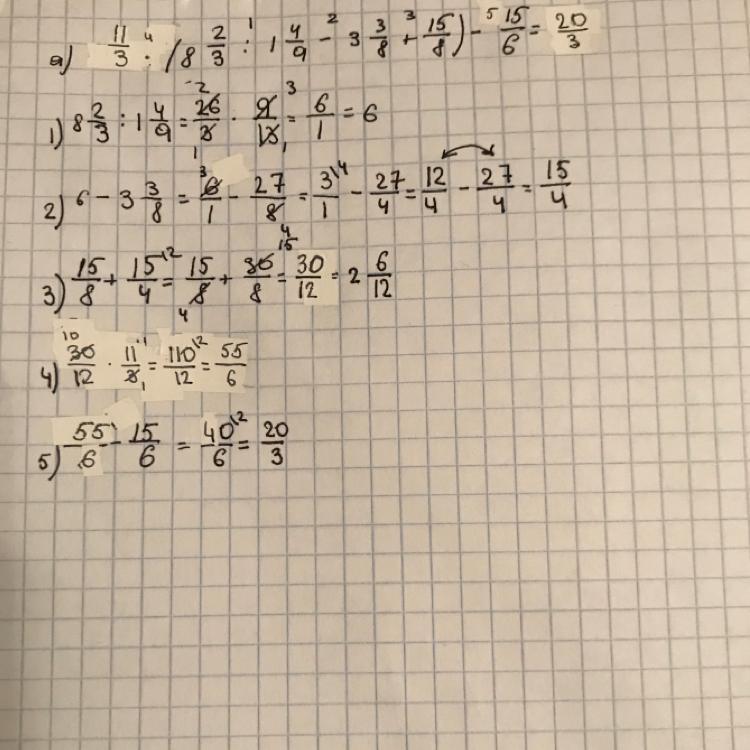 a) 11/3 : (8 2/3 : 1 4/9 - 3 3/8 + 15/8) - 15/6 = 20/3
1) 8 2/3 : 1 4/9 = 26/3 · 9/13 = 6/1 = 6
2) 6 - 3 3/8 = 6/1 - 27/8 = 3/1 - 27/4 = 12/4 - 27/4 = 15/4
3) 15/8 + 15/4 = 15/8 + 30/8 = 30/12 = 2 6/12
4) 30/12 · 11/3 = 110/12 = 55/6
5) 55/6 - 15/6 = 40/6 = 20/3